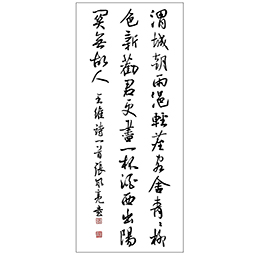 渭城朝雨浥輕塵客舍青〻柳
色新勸君更盡一杯酒西出陽
関無故人
王維詩一首張